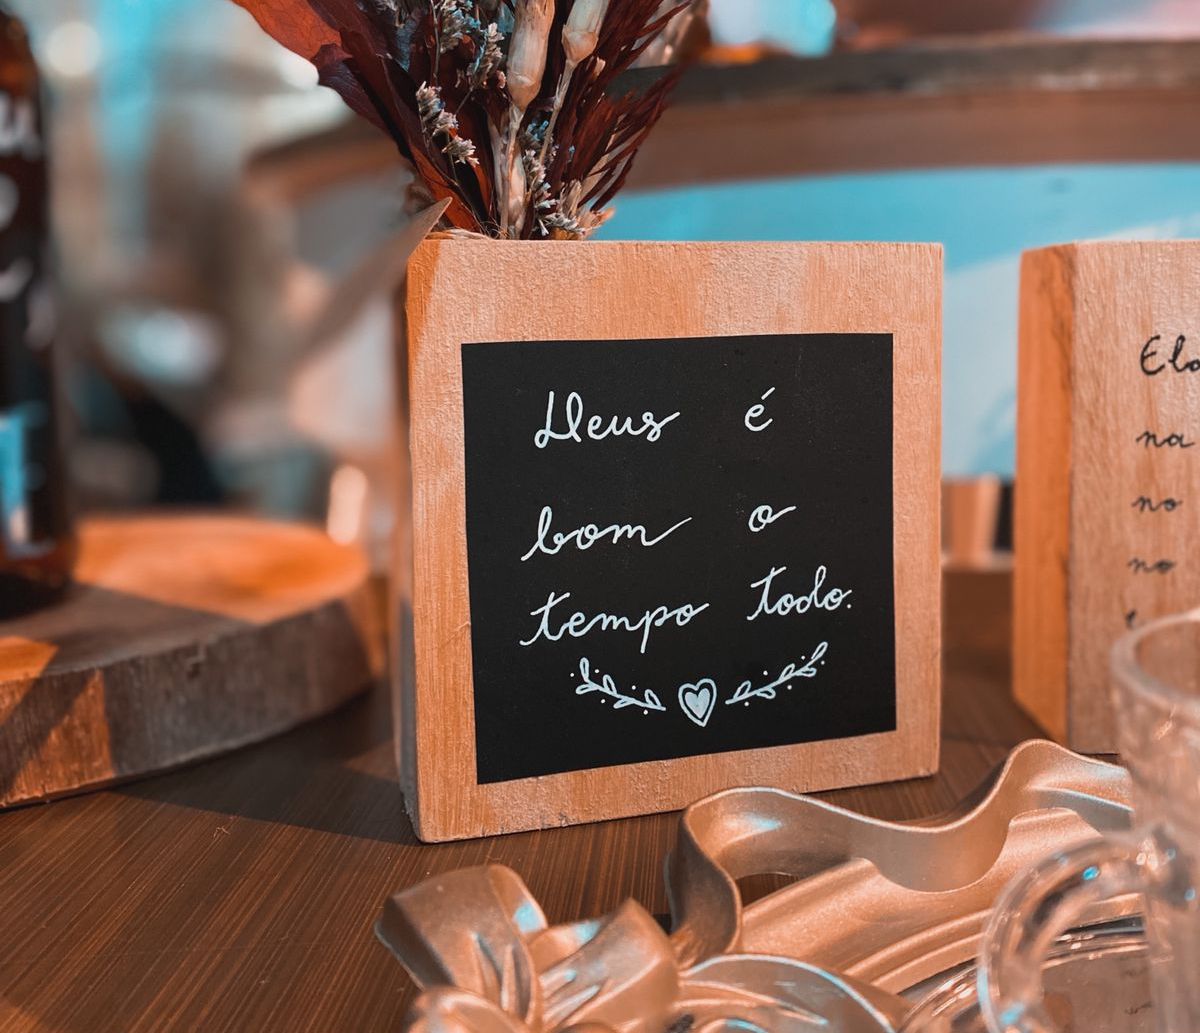 Deus é
bom o
tempo todo.
na
no
no